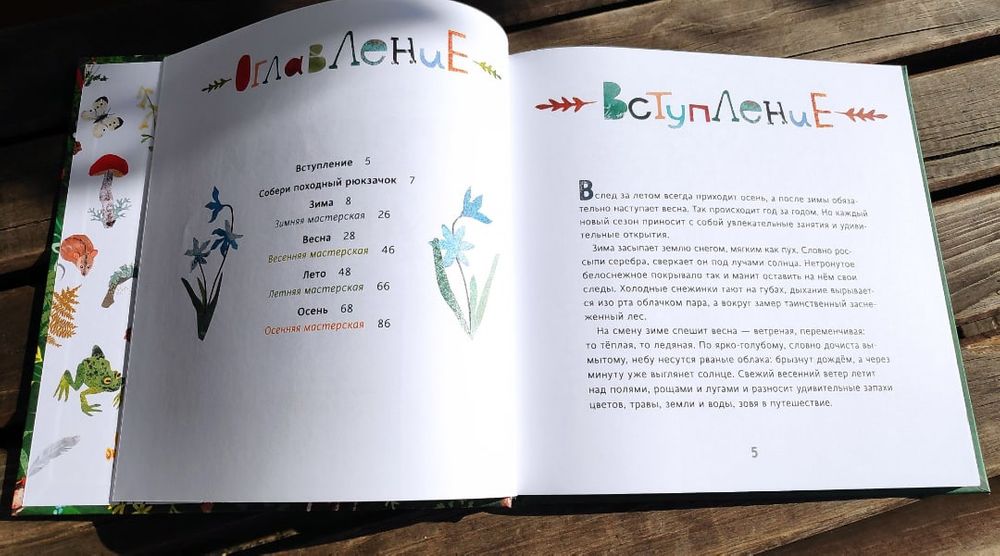 ОглавЛЕНиЕ
Вступление 5
Собери походный рюкзачок 7
Зима 8
Зимняя мастерская 26
Весна 28
Весенняя мастерская 46
Лето 48
Летняя мастерская 66
Осень 68
Осенняя мастерская 86
ВсТупЛеНиЕ
Вслед за летом всегда приходит осень, а после зимы обяза-
тельно наступает весна. Так происходит год за годом. Но каждый
новый сезон приносит с собой увлекательные занятия и удиви-
тельные открытия.
Зима засыпает землю снегом, мягким как пух. Словно рос-
сыпи серебра, сверкает он под лучами солнца. Нетронутое
белоснежное покрывало так и манит оставить на нём свои
следы. Холодные снежинки тают на губах, дыхание вырывает-
ся изо рта облачком пара, а вокруг замер таинственный засне-
женный лес.
На смену зиме спешит весна — ветреная, переменчивая:
то тёплая, то ледяная. По ярко-голубому, словно дочиста вы-
мытому, небу несутся рваные облака: брызнут дождём, а через
минуту уже выглянет солнце. Свежий весенний ветер летит
над полями, рощами и лугами и разносит удивительные запахи
цветов, травы, земли и воды, зовя в путешествие.
5